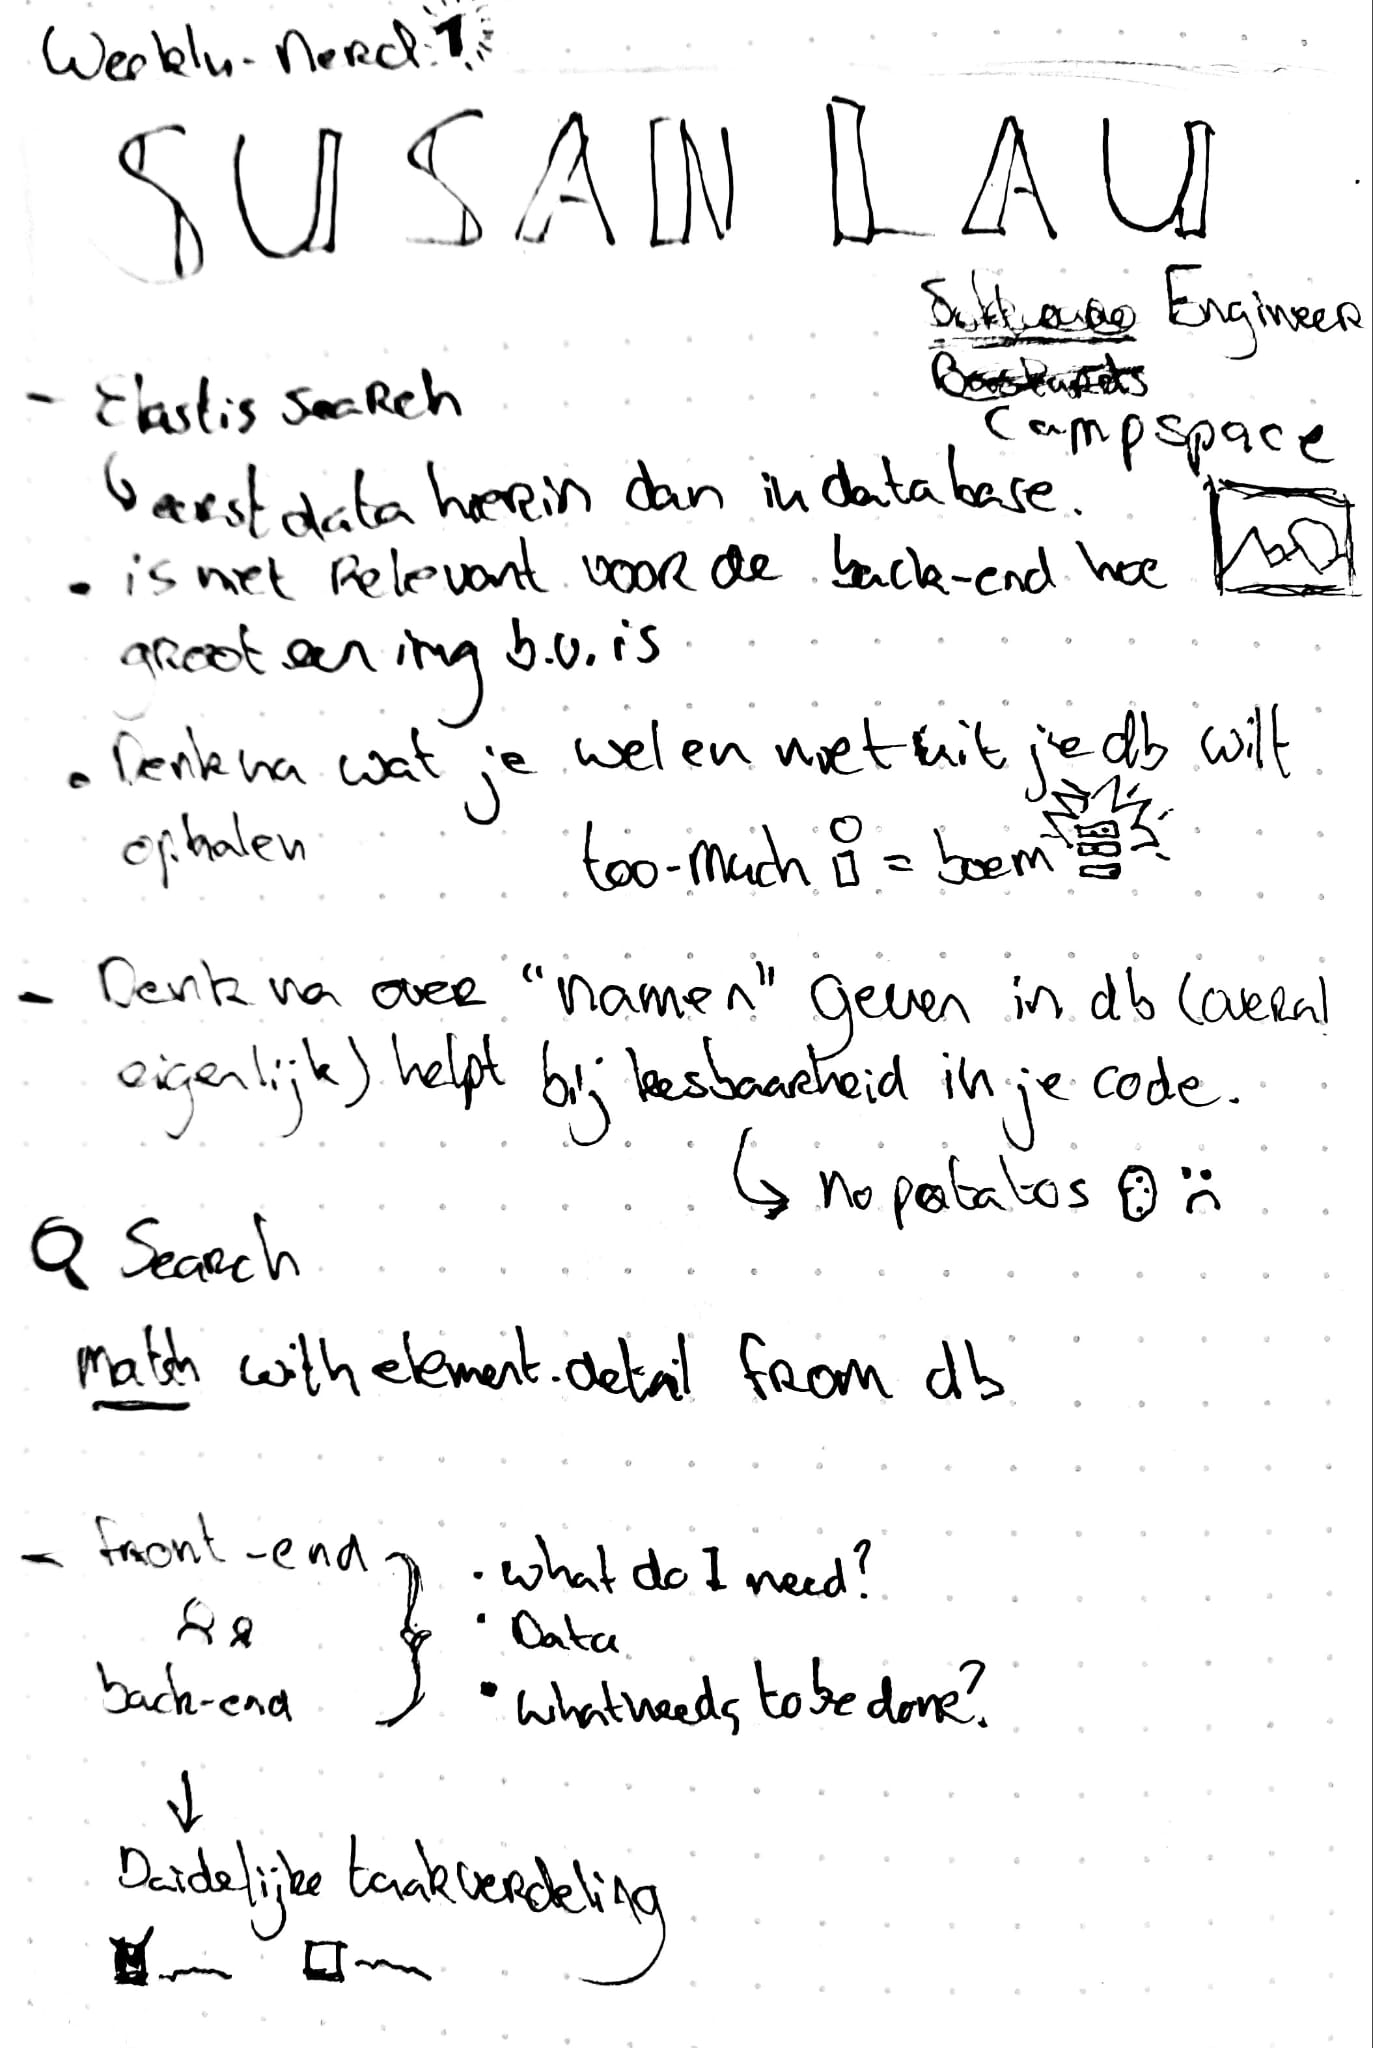 Weekly-Nerd 1
SUSAN LAU
Software Engineer
Campspace
- Elastis search
eerst data hierin dan in database.
• is niet Relevant voor de back-end hoe
groot een img b.v. is
• Denk na wat je wel en niet uit je db wilt
ophalen
too-much i = boem
- Denk na over "namen" geven in db (overal
eigenlijk) helpt bij leesbaarheid in je code.
↳ no potatos
Search
Match with element.detail from db
- front-end
back-end
• what do I need?
• Data
• what needs to be done?
↓
Duidelijke taakverdeling